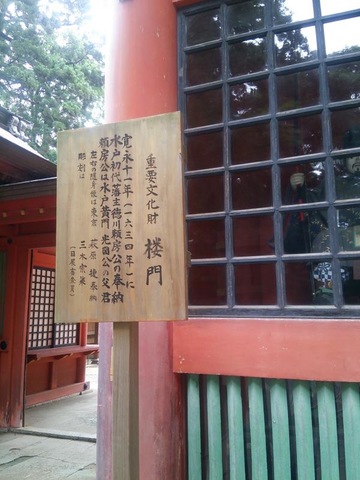 重要文化財 楼門
寛永十一年（一六三四年）に
水戸初代藩主徳川頼房公の奉納
頼房公は水戸黄門 光圀公の父君
左右の随身像は東京 萩原 捷奉納
彫刻は 三木宗策
（日展審査員）